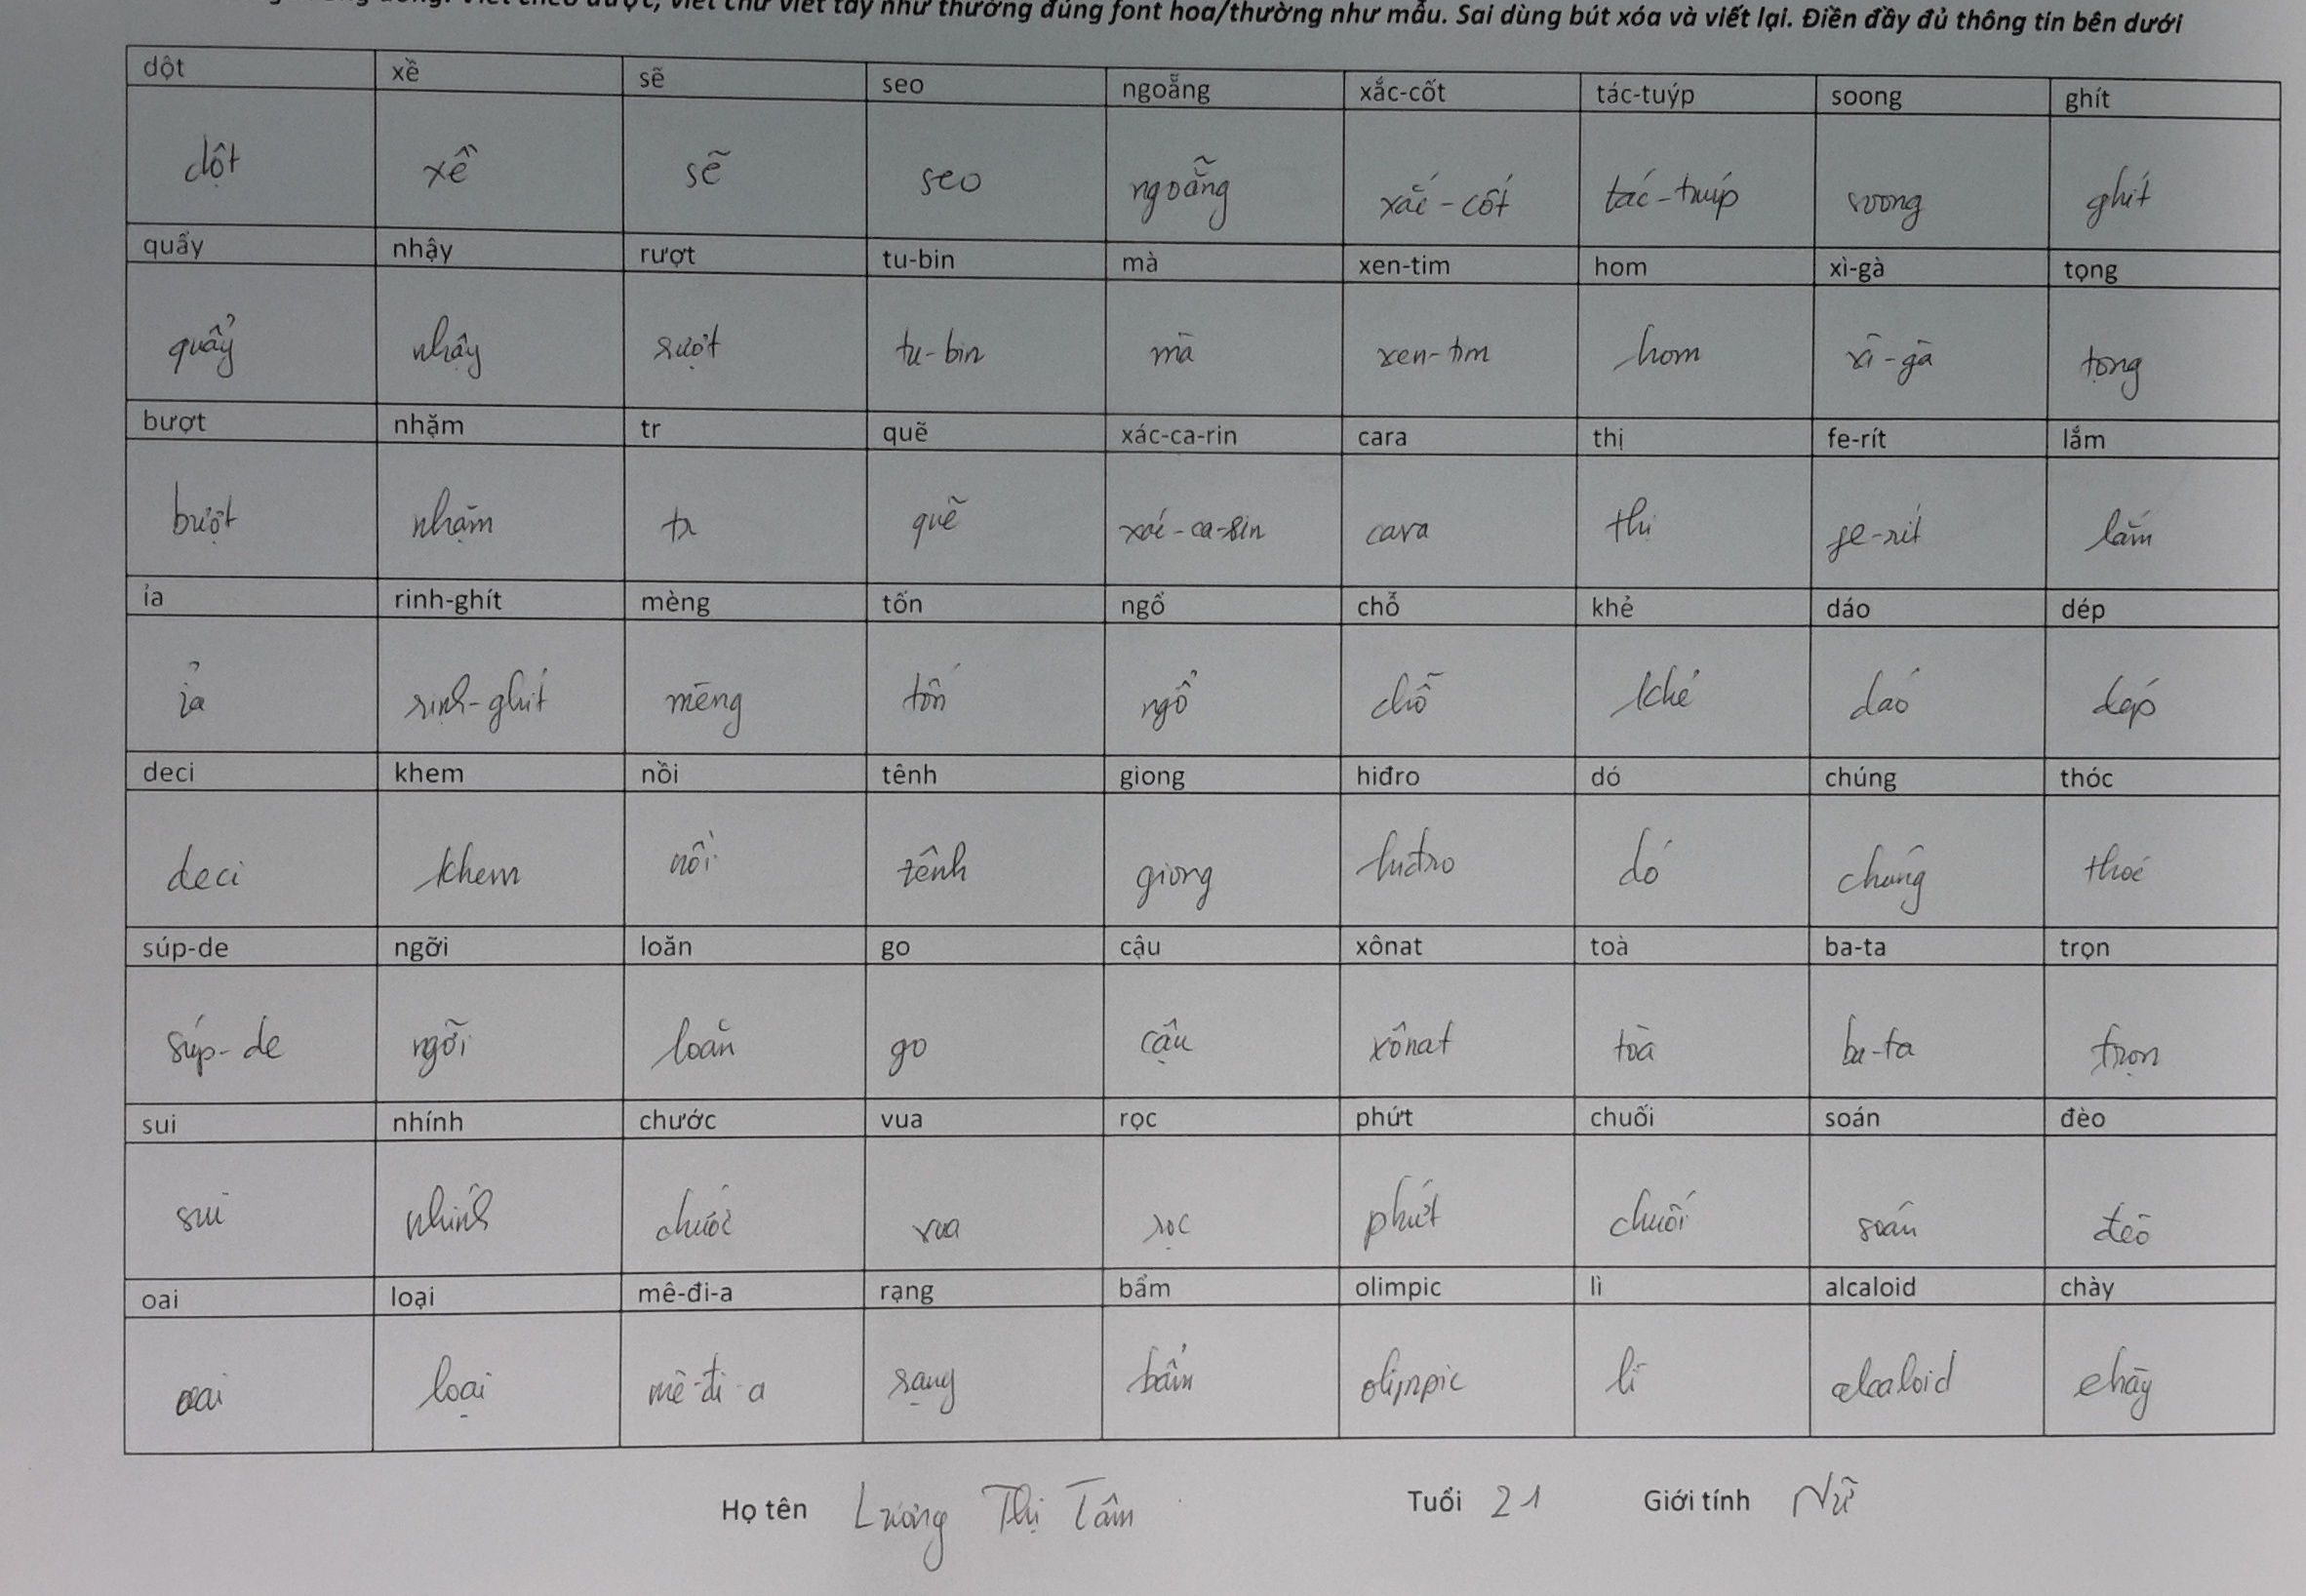 viết chữ viết tay như thường đúng font hoa/thường như mẫu. Sai dùng bút xóa và viết lại. Điền đầy đủ thông tin bên dưới
dột xề sẽ seo ngoẵng xắc-cốt tác-tuýp soong ghít
dột xề sẽ seo ngoẵng xắc-cốt tác-tuýp soong ghít
quẩy nhậy rượt tu-bin mà xen-tim hom xì-gà tọng
quẩy nhậy rượt tu-bin mà xen-tim hom xì-gà tọng
bượt nhặm tr quẽ xác-ca-rin cara thị fe-rít lắm
bượt nhặm tr quẽ xác-ca-rin cara thị fe-rít lắm
ỉa rinh-ghít mèng tốn ngổ chỗ khẻ dáo dép
ỉa rinh-ghít mèng tốn ngổ chỗ khẻ dáo dép
deci khem nồi tênh giong hiđro dó chúng thóc
deci khem nồi tênh giong hiđro dó chúng thóc
súp-de ngỡi loăn go cậu xônat toà ba-ta trọn
súp-de ngỡi loăn go cậu xônat toà ba-ta trọn
sui nhính chước vua rọc phứt chuối soán đèo
sui nhính chước vua rọc phứt chuối soán đèo
oai loại mê-đi-a rạng bẩm olimpic lì alcaloid chày
oai loại mê-đi-a rạng bẩm olimpic lì alcaloid chày
Họ tên Lương Thị Tâm Tuổi 21 Giới tính Nữ